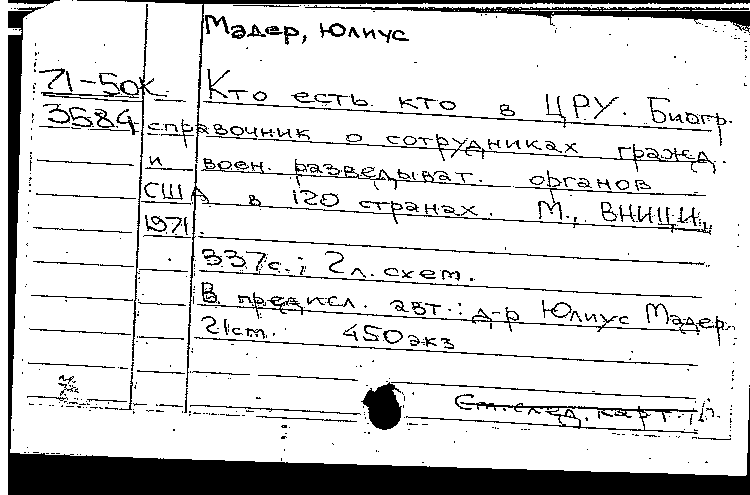 Мадер, Юлиус
71-50К Кто есть кто в ЦРУ. Биогр.
3584 справочник о сотрудниках гражд.
и воен. разведыват. органов
США в 120 странах. М., ВНИЦИ,
1971.
337с.; 2л. схем.
В предисл. авт.: д-р Юлиус Мадер.
21см. 450экз
См. след. карт.